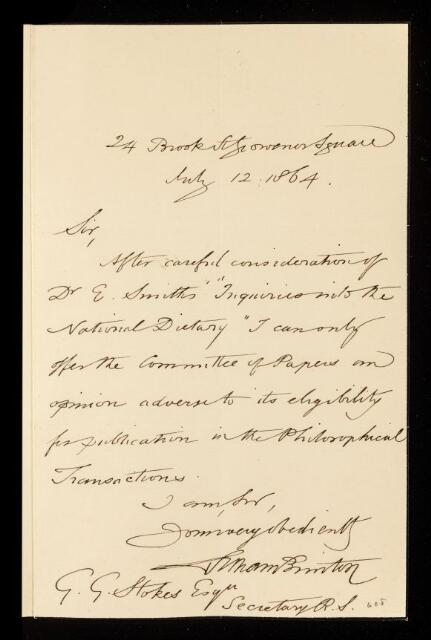 24 Brook St Grosvenor Square
July 12. 1864.
Sir,
After careful consideration of
Dr E. Smith's "Inquiries into the
National Dietary" I can only
offer the Committee of Papers an
opinion adverse to its eligibility
for publication in the Philosophical
Transactions.
I am, Sir,
Yours very obediently
William Brinton
G. G. Stokes Esqre
Secretary R. S.